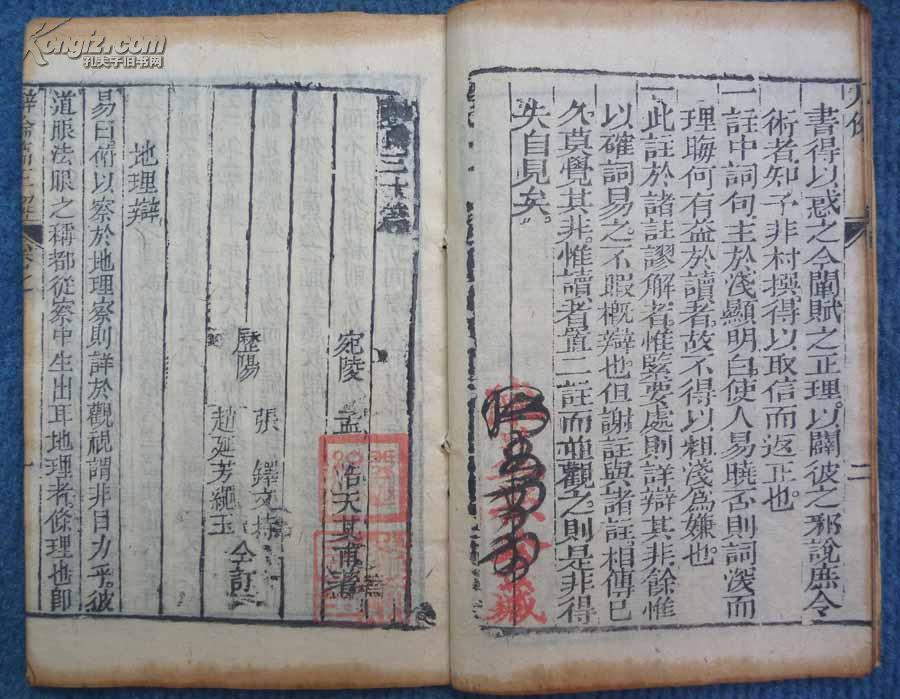 凡例
二
書得以惑之今闡賦之正理以闢彼之邪說庶令
術者知予非杜撰得以取信而返正也
一註中詞句主於淺顯明白使人易曉否則詞深而
理晦何有益於讀者故不得以粗淺為嫌也
一此註於諸註謬解者惟緊要處則詳辯其非餘惟
以確詞易之不暇概辯也但謝註與諸註相傳已
久莫覺其非惟讀者置二註而並觀之則是非得
失自見矣
宛陵 孟 浩天其甫著
歷陽 張 鐸文持
趙延芳繩玉 仝訂
地理辯
易曰俯以察於地理察則詳於觀視謂非目力乎彼
道眼法眼之稱都從察中生出耳地理者條理也即
一
Kongfz.com
孔夫子旧书网